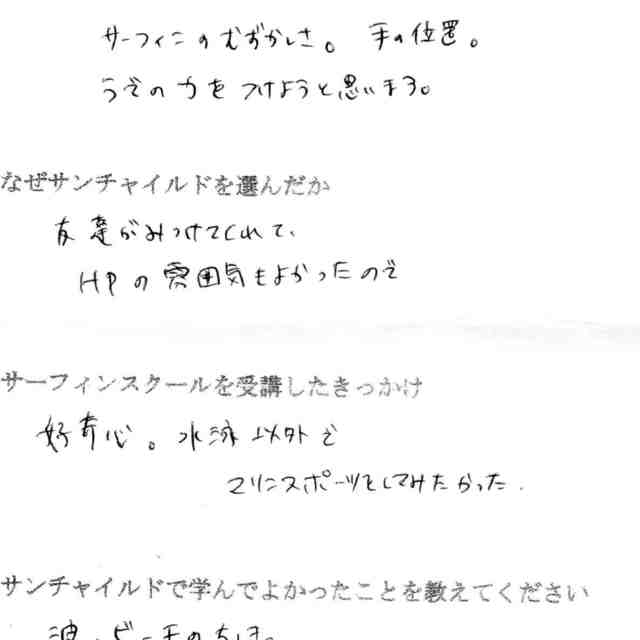 サーフィンのむずかしさ。手の位置。
うでの力をつけようと思います。
なぜサンチャイルドを選んだか
友達がみつけてくれて、
HPの雰囲気もよかったので
サーフィンスクールを受講したきっかけ
好奇心。水泳以外で
マリンスポーツをしてみたかった.
サンチャイルドで学んでよかったことを教えてください
波、ビーチの